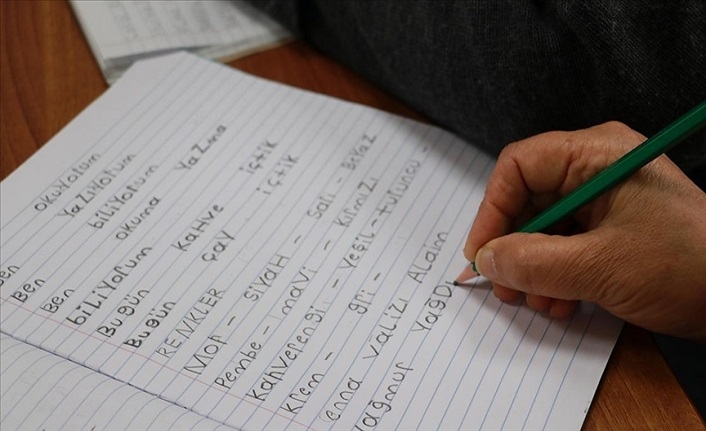 Ben okuyorum
Ben YazıYorum
Ben biliYorum
biliYorum okuma Yazma
Bugün kahve içtik
Bugün çay içtik
RENKLER
Mor - siYaH - Sarı - BeYaz
Pembe - mavi - kırmızı
kahverengi - Yeşil - turuncu -
krem - gri -
valizi
Yağmur YağD